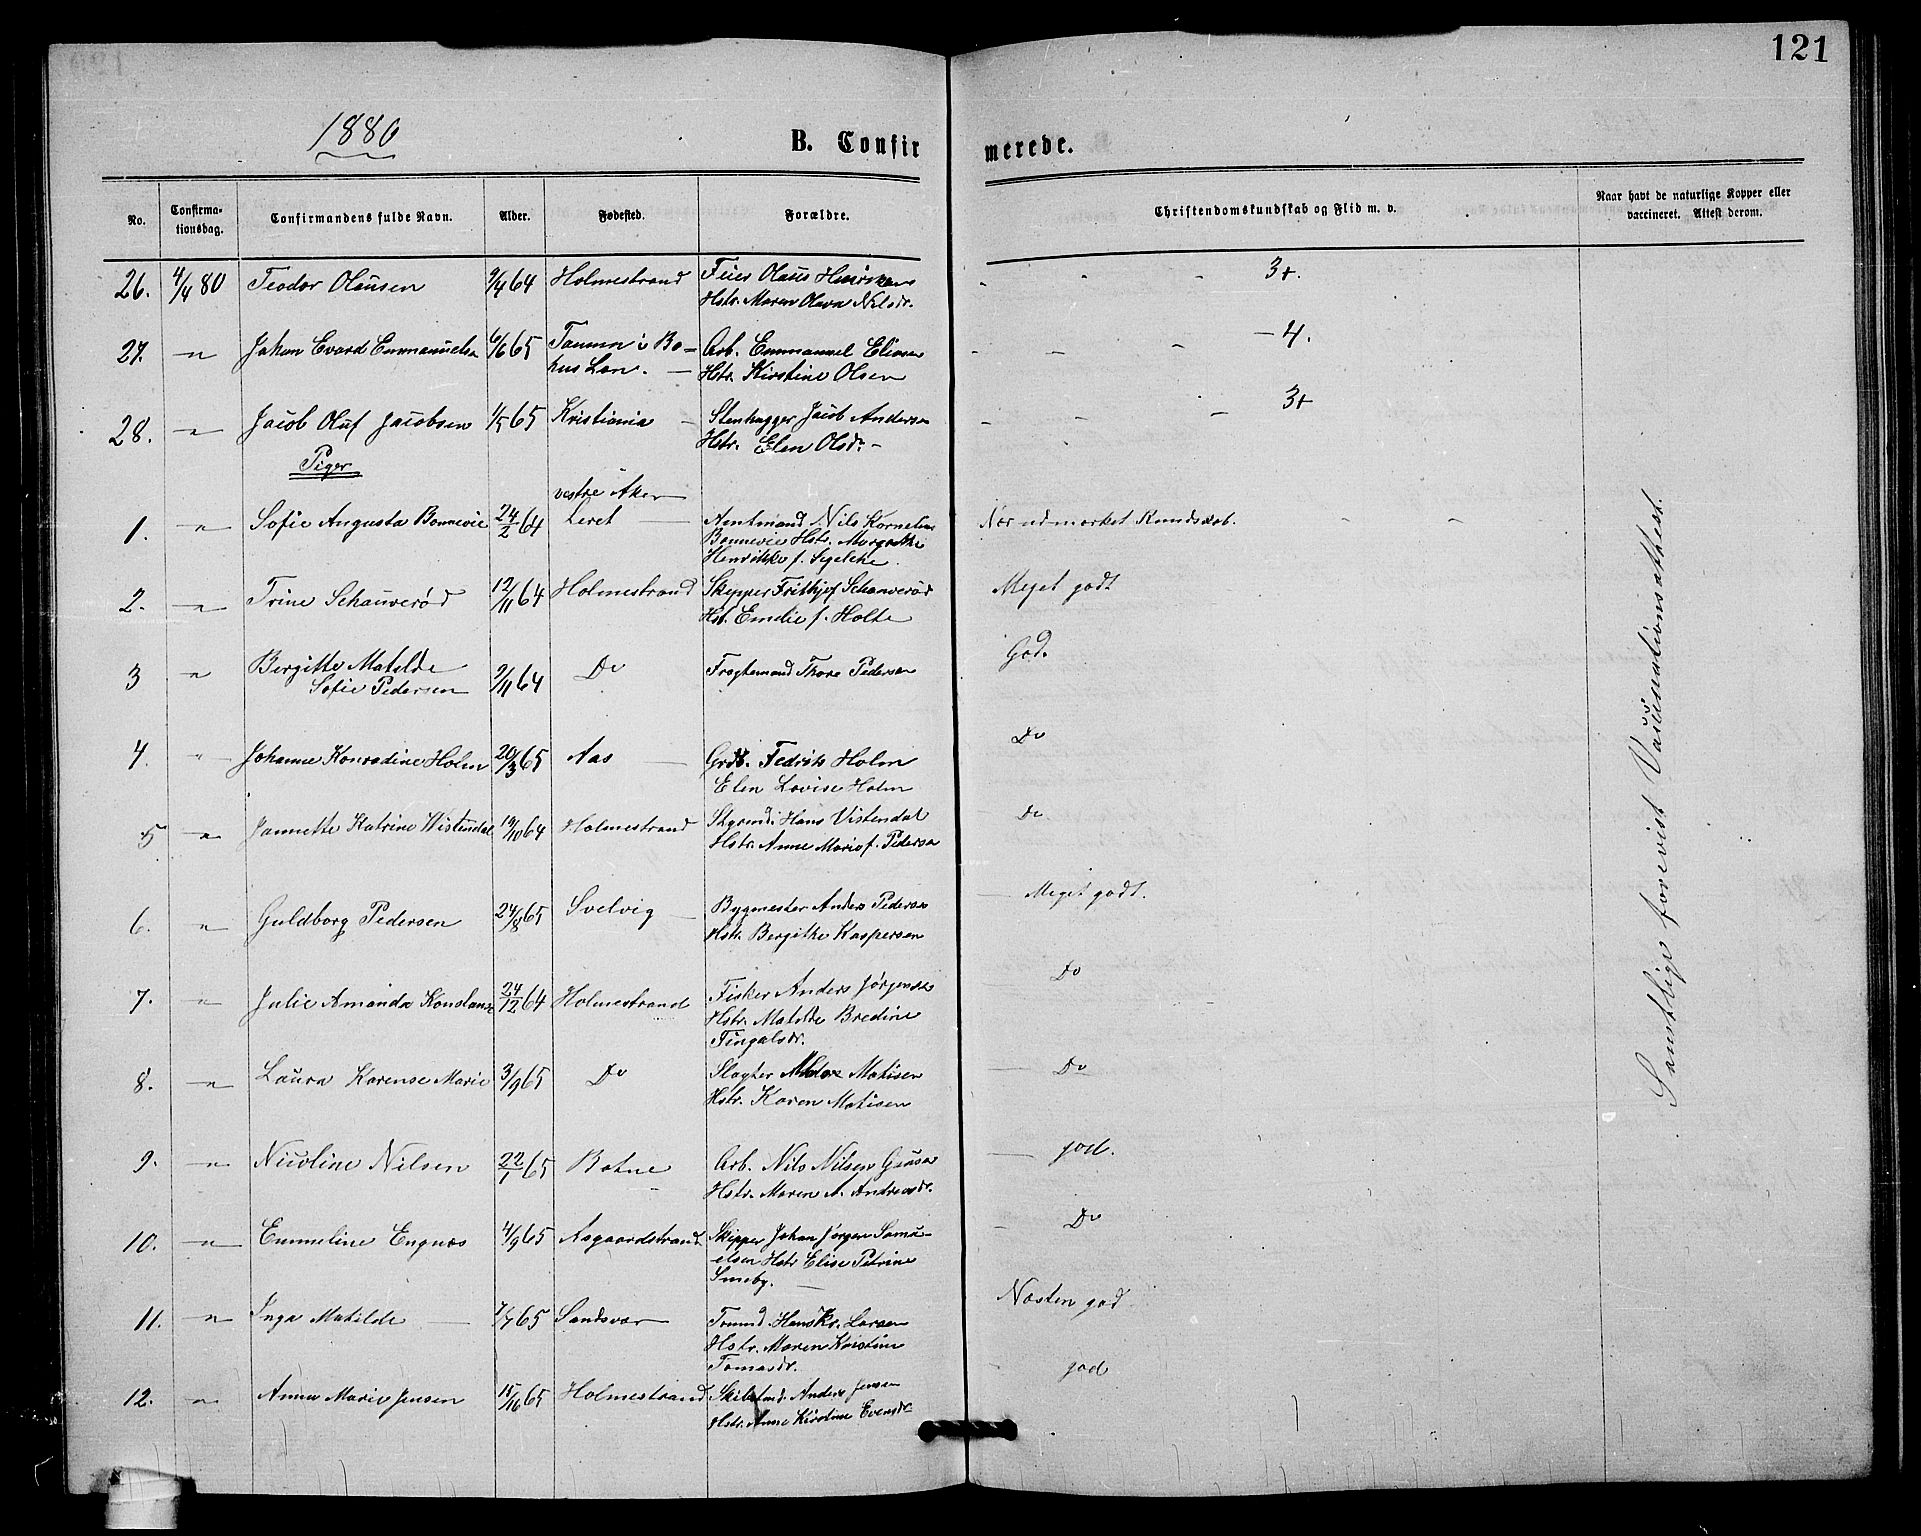 121
1880
B. Confirmerede.
No. Confirmationsdag. Confirmandens fulde Navn. Alder. Fødested. Forældre. Christendomskundskab og Flid m. v. Naar havt de naturlige Kopper eller vaccineret. Attest derom.
26. 4/4 80 Teodor Olausen 9/4 64 Holmestrand Feier Olaus
Hstr. Maren Olava Nilsdr. 3+.
27. " Johan Evard Emmanuelsen 6/6 65 Tanum i Bo- Arb. Emmanuel Eliasen - 4.
hus Len. Hstr. Kirstine Olsen
28. " Jacob Oluf Jacobsen 1/5 65 Kristiania Stenhugger Jacob Andersen 3+
Hstr. Elen Olsdr.
Piger
vestre Aker
1. " Sofie Augusta Bonnevie 24/2 64 Leret Amtmand Nils Kornelius Nær udmærket Kundskab.
Bonnevie Hstr. Margrethe
Henrikke f. Segelcke.
2. " Trine Schauverød 12/11 64 Holmestrand Skipper Frithjof Schauverød Meget godt
Hst. Emilie f. Holte
3 " Bergitte Matilde 9/11 64 Do Fragtemand Thore Pedersen God.
Sofie Pedersen
4. " Johanne Konradine Holm 20/3 65 Aas Grdb. Fedrik Holm Do
Elen Lovise Holm
5 " Jannette Katrine Wistendal 19/10 64 Holmestrand Hans Vistendal Do
Hstr. Anne Marie f. Pedersen
6. " Guldborg Pedersen 24/8 65 Svelvig Bygmester Anders Pedersen Meget godt.
Hstr. Bergithe Kaspersen
7. " Julie Amanda Konstanse 24/12 64 Holmestrand Fisker Anders Jørgensen Do
Hstr. Matilde Bredine
Tingalsdr.
8. " Laura Karense Marie 3/9 65 Do Slagter Matisen Do
Hstr. Karen Matisen
9. " Nicoline Nilsen 22/1 65 Botne Arb. Nils Nilsen god.
Hstr. Maren A. Andreasdr.
10. " Emmeline Engnæs 4/9 65 Aasgaardstrand Skipper Johan Jørgen Samu- Do
elsen Hstr Elise Petrine
Smeby.
11. " Inga Matilde 7/7 65 Sandsvær Tømmd. Hans Kr. Larsen Næsten god
Hstr. Maren Kristine
Tomasdr.
12. " Anna Marie Jensen 65 Holmestrand Anders Jensen god
Hstr. Anne Kirstine Evensdr
Samtlige forevist Vaksinationsathest.